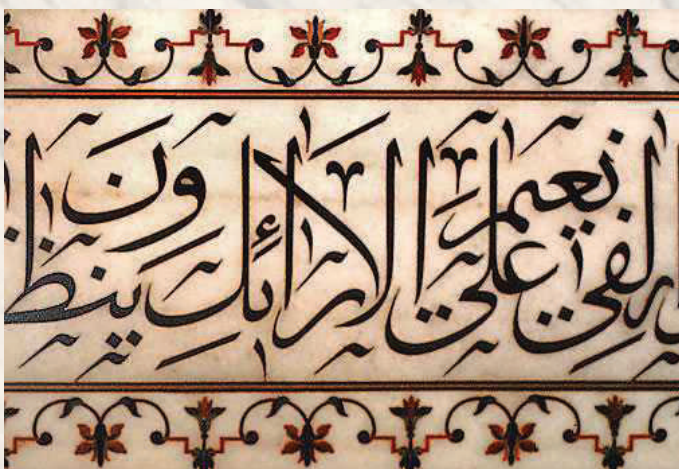 لَفِي نَعِيمٍ عَلَى الْأَرَائِكِ يَنظُرُونَ